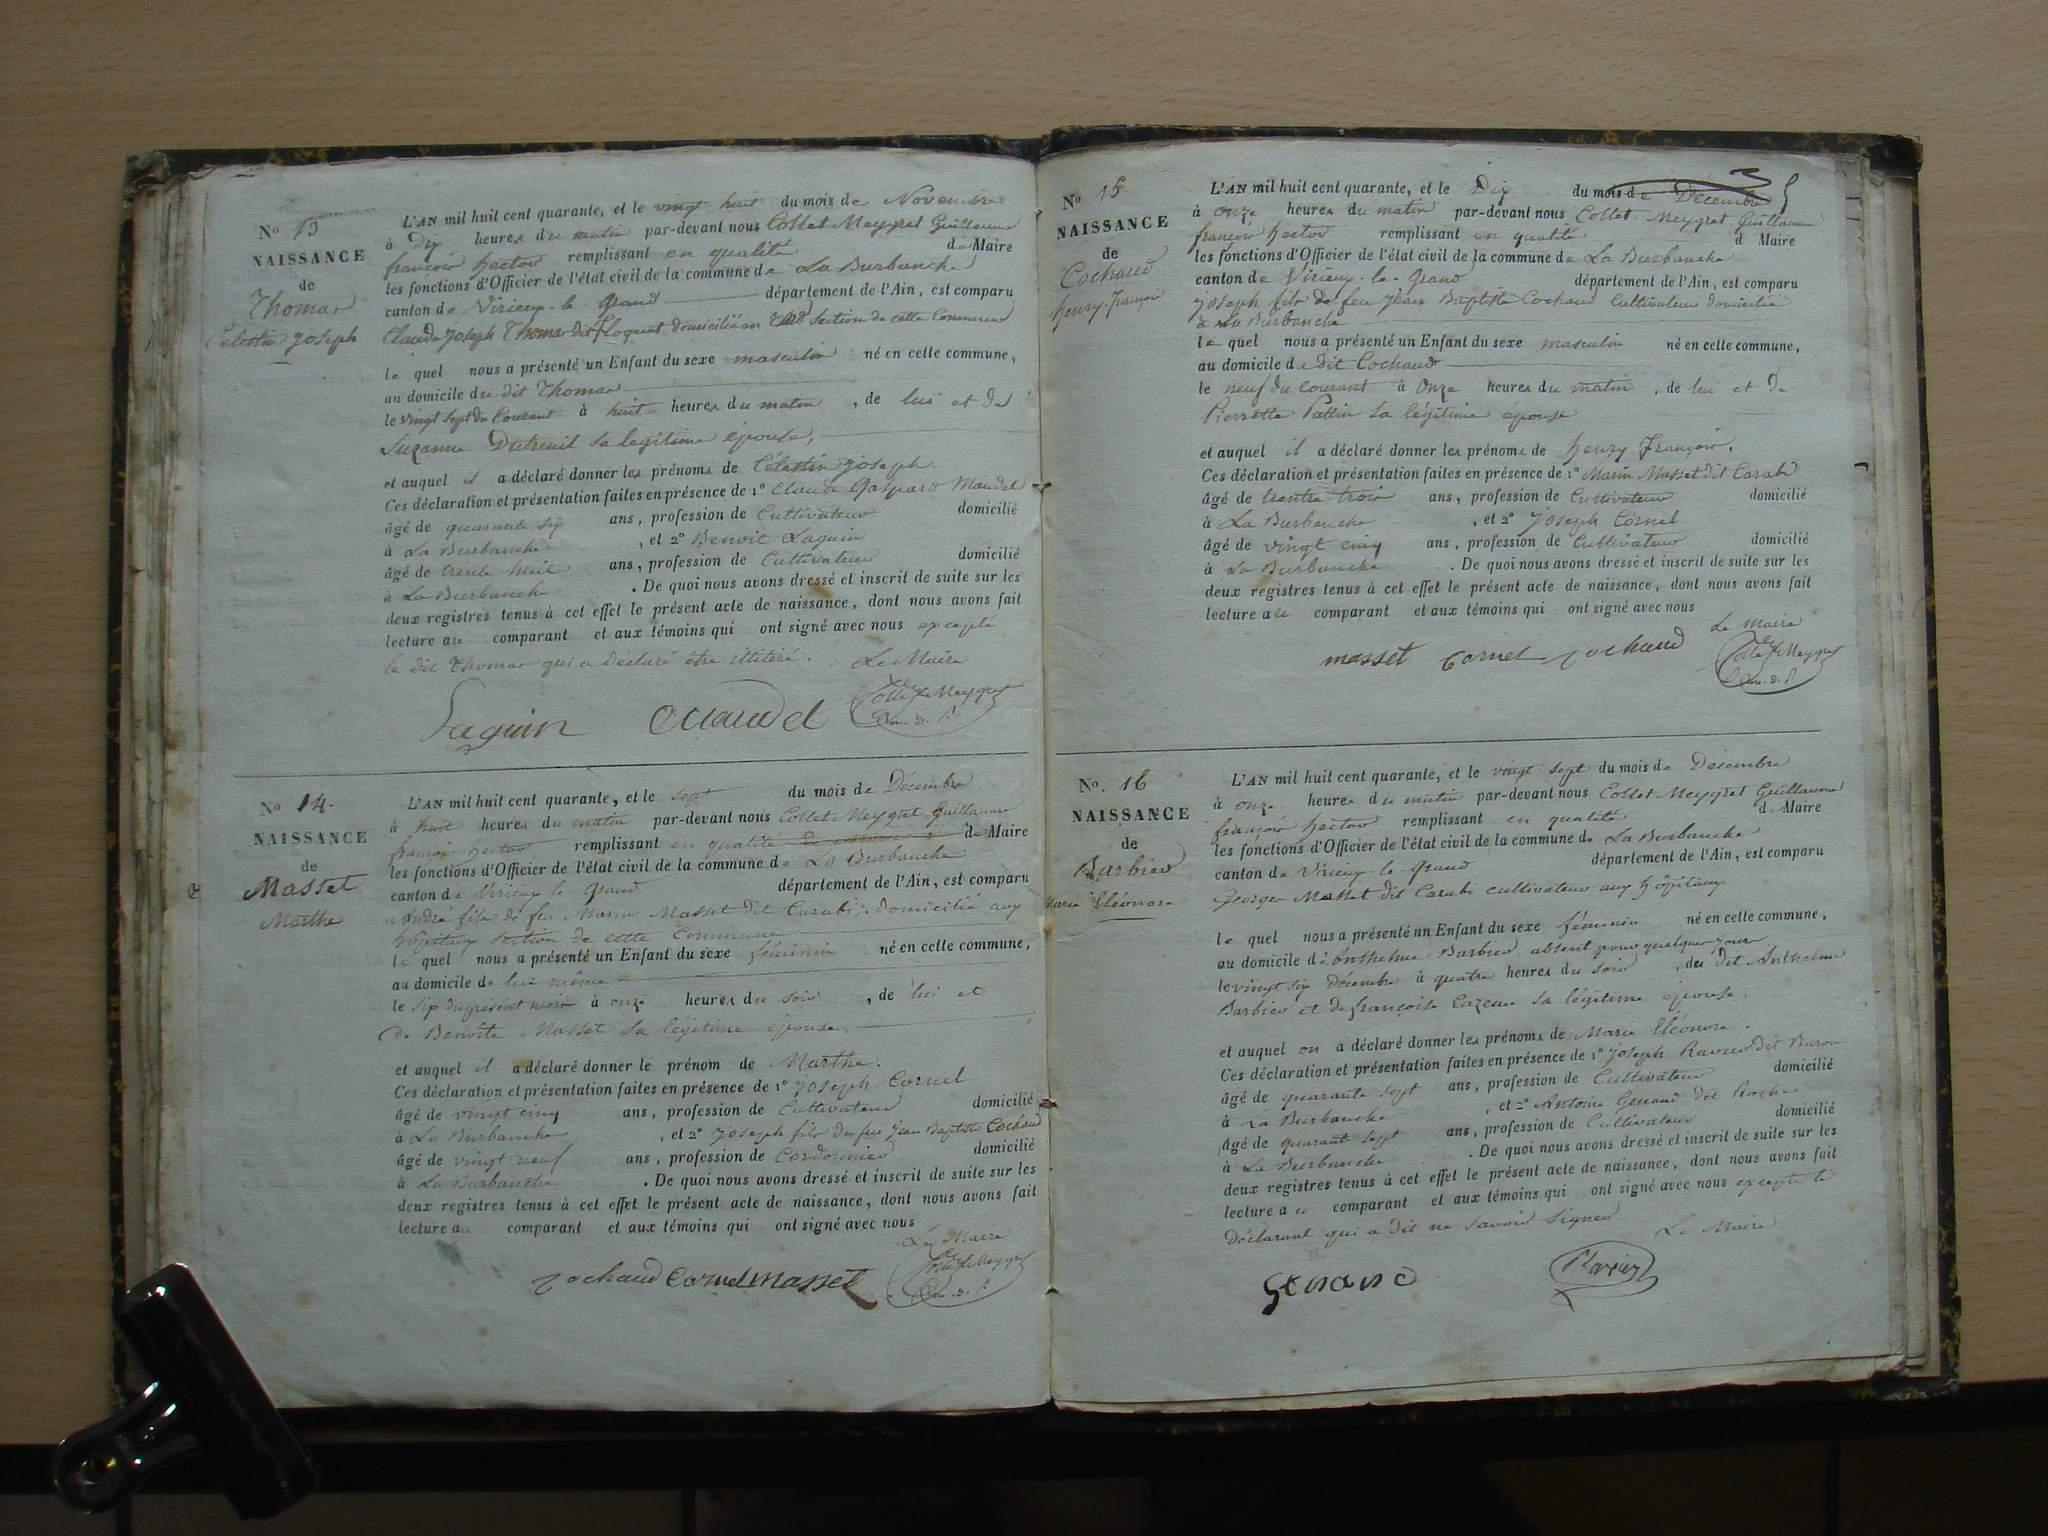 No 13
NAISSANCE
de
Thomas
Célestin Joseph
L'AN mil huit cent quarante, et le vingt huit du mois de Novembre
à Dix heures du matin par-devant nous Collet-Meygret Guillaume
françois hector remplissant en qualité de Maire
les fonctions d'Officier de l'état civil de la commune de La Burbanche
canton de Virieux-le-Grand département de l'Ain, est comparu
Claude Joseph Thomas dit floquet domicilié en section de cette Commune
le quel nous a présenté un Enfant du sexe masculin né en cette commune,
au domicile du dit Thomas
le vingt sept du Courant à huit heures du matin, de lui et de
Suzanne Dutreuil sa legitime épouse,
et auquel il a déclaré donner les prénoms de Célestin Joseph.
Ces déclaration et présentation faites en présence de 1o Claude Gaspard Maudel
âgé de quarante six ans, profession de Cultivateur domicilié
à La Burbanche, et 2o Benoit Laguin
âgé de trente huit ans, profession de Cultivateur domicilié
à La Burbanche. De quoi nous avons dressé et inscrit de suite sur les
deux registres tenus à cet effet le présent acte de naissance, dont nous avons fait
lecture au comparant et aux témoins qui ont signé avec nous excepté
le dit Thomas qui a déclaré être illitéré. Le Maire
Laguin Maudel Collet-Meygret
No 14.
NAISSANCE
de
Masset
Marthe
L'AN mil huit cent quarante, et le sept du mois de Décembre
à huit heures du matin par-devant nous Collet-Meygret Guillaume
françois hector remplissant en qualité de Maire
les fonctions d'Officier de l'état civil de la commune de La Burbanche
canton de Virieux le Grand département de l'Ain, est comparu
André fils de feu Marin Masset dit Carabi, domicilié aux
hôpitaux section de cette Commune
le quel nous a présenté un Enfant du sexe féminin né en cette commune,
au domicile de lui même
le six du présent mois à onze heures du soir, de lui et
de Benoîte Masset sa légitime épouse,
et auquel il a déclaré donner le prénom de Marthe.
Ces déclaration et présentation faites en présence de 1o Joseph Cornel
âgé de vingt cinq ans, profession de Cultivateur domicilié
à La Burbanche, et 2o Joseph fils de feu Jean Baptiste Cochaud
âgé de vingt neuf ans, profession de Cordonnier domicilié
à La Burbanche. De quoi nous avons dressé et inscrit de suite sur les
deux registres tenus à cet effet le présent acte de naissance, dont nous avons fait
lecture au comparant et aux témoins qui ont signé avec nous
Le Maire
Cochaud Cornel Masset Collet-Meygret
No 15
NAISSANCE
de
Cochaud
henry-françois
L'AN mil huit cent quarante, et le Dix du mois de Décembre
à onze heures du matin par-devant nous Collet-Meygret Guillaume
françois hector remplissant en qualité d Maire
les fonctions d'Officier de l'état civil de la commune de La Burbanche
canton de Virieux-le-Grand département de l'Ain, est comparu
Joseph fils de feu Jean Baptiste Cochaud Cultivateur domicilié
à La Burbanche
le quel nous a présenté un Enfant du sexe masculin né en cette commune,
au domicile du dit Cochaud
le neuf du Courant à Onze heures du matin, de lui et de
Pierrette Pattin sa légitime épouse
et auquel il a déclaré donner les prénoms de henry françois.
Ces déclaration et présentation faites en présence de 1o Marin Masset dit Carabi
âgé de trente trois ans, profession de Cultivateur domicilié
à La Burbanche, et 2o Joseph Cornel
âgé de vingt cinq ans, profession de Cultivateur domicilié
à La Burbanche. De quoi nous avons dressé et inscrit de suite sur les
deux registres tenus à cet effet le présent acte de naissance, dont nous avons fait
lecture au comparant et aux témoins qui ont signé avec nous
Le Maire
masset Cornel Cochaud Collet-Meygret
No. 16
NAISSANCE
de
Barbier
Marie Eléonore
L'AN mil huit cent quarante, et le vingt sept du mois de Décembre
à onze heures du matin par-devant nous Collet-Meygret Guillaume
françois hector remplissant en qualité de Maire
les fonctions d'Officier de l'état civil de la commune de La Burbanche
canton de Virieux-le-Grand département de l'Ain, est comparu
George Masset dit Carabi cultivateur aux hôpitaux
le quel nous a présenté un Enfant du sexe féminin né en cette commune,
au domicile d'Anthelme Barbier absent pour quelques jours
le vingt six décembre à quatre heures du soir, du dit Anthelme
Barbier et de françoise Cazeau sa légitime épouse,
et auquel on a déclaré donner les prénoms de Marie Eléonore.
Ces déclaration et présentation faites en présence de 1o Joseph Ravier dit Baron
âgé de quarante sept ans, profession de Cultivateur domicilié
à La Burbanche, et 2o Antoine Genaud dit Roche
âgé de quarante sept ans, profession de Cultivateur domicilié
à La Burbanche. De quoi nous avons dressé et inscrit de suite sur les
deux registres tenus à cet effet le présent acte de naissance, dont nous avons fait
lecture au comparant et aux témoins qui ont signé avec nous excepté le
déclarant qui a dit ne savoir signer. Le Maire
Genand Ravier